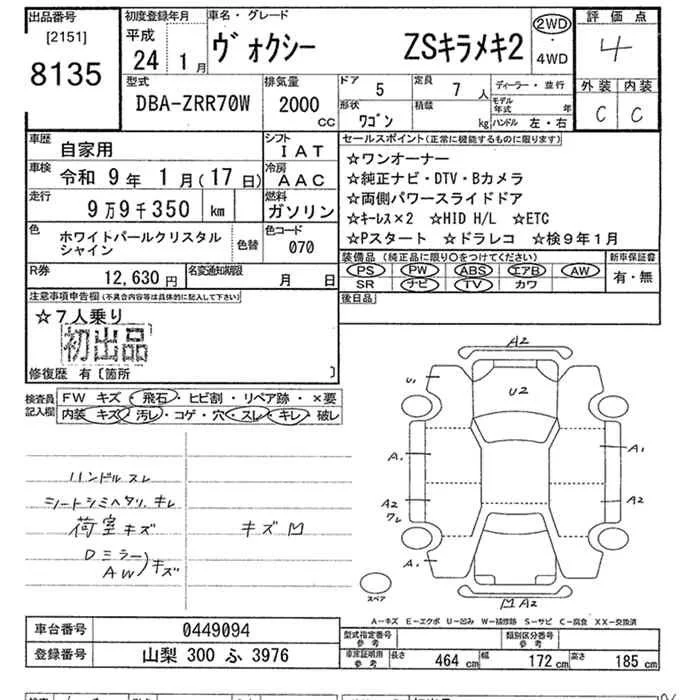 出品番号
[2151]
8135
初度登録年月
平成
24 1月
車名・グレード
ヴォクシー ZSキラメキ2
2WD
・
4WD
評価点
4
外装 内装
C C
型式
DBA-ZRR70W
排気量
2000 CC
ドア 5
定員 7 人
形状 ワゴン
積載 kg
ディーラー・並行
モデル年式 年
ハンドル 左・右
車歴 自家用
シフト IAT
車検 令和 9年 1月(17日)
冷房 AAC
走行 9万9千350 km
燃料 ガソリン
色 ホワイトパールクリスタルシャイン
色替
色コード 070
R券 12,630円
名変通知期限 月 日
セールスポイント(正常に機能するものに限ります)
☆ワンオーナー
☆純正ナビ・DTV・Bカメラ
☆両側パワースライドドア
☆キーレス×2 ☆HID H/L ☆ETC
☆Pスタート ☆ドラレコ ☆検9年1月
装備品(純正品に限り○をつけてください)
PS PW ABS エアB AW
SR ナビ TV カワ
新車保証書
有・無
後日品
注意事項申告欄(不具合内容等は具体的に記入して下さい)
☆7人乗り
初出品
修復歴 有〔箇所 〕
検査員記入欄
FW キズ・飛石・ヒビ割・リペア跡・×要
内装 キズ・汚レ・コゲ・穴・スレ・キレ・破レ
ハンドルスレ
シートシミヘタリ.キレ
荷室キズ
Dミラー
AW)キズ
キズM
A2
U1
U2
A.
A1
A2
ワレ
A2
A.
M A2
スペア
A-キズ E-エクボ U-凹み W-補修跡 S-サビ C-腐食 XX-交換済
車台番号 0449094
登録番号 山梨 300 ふ 3976
型式指定番号 参考
類別区分番号 参考
車庫証明用 参考
長さ 464 cm
幅 172 cm
高さ 185 cm